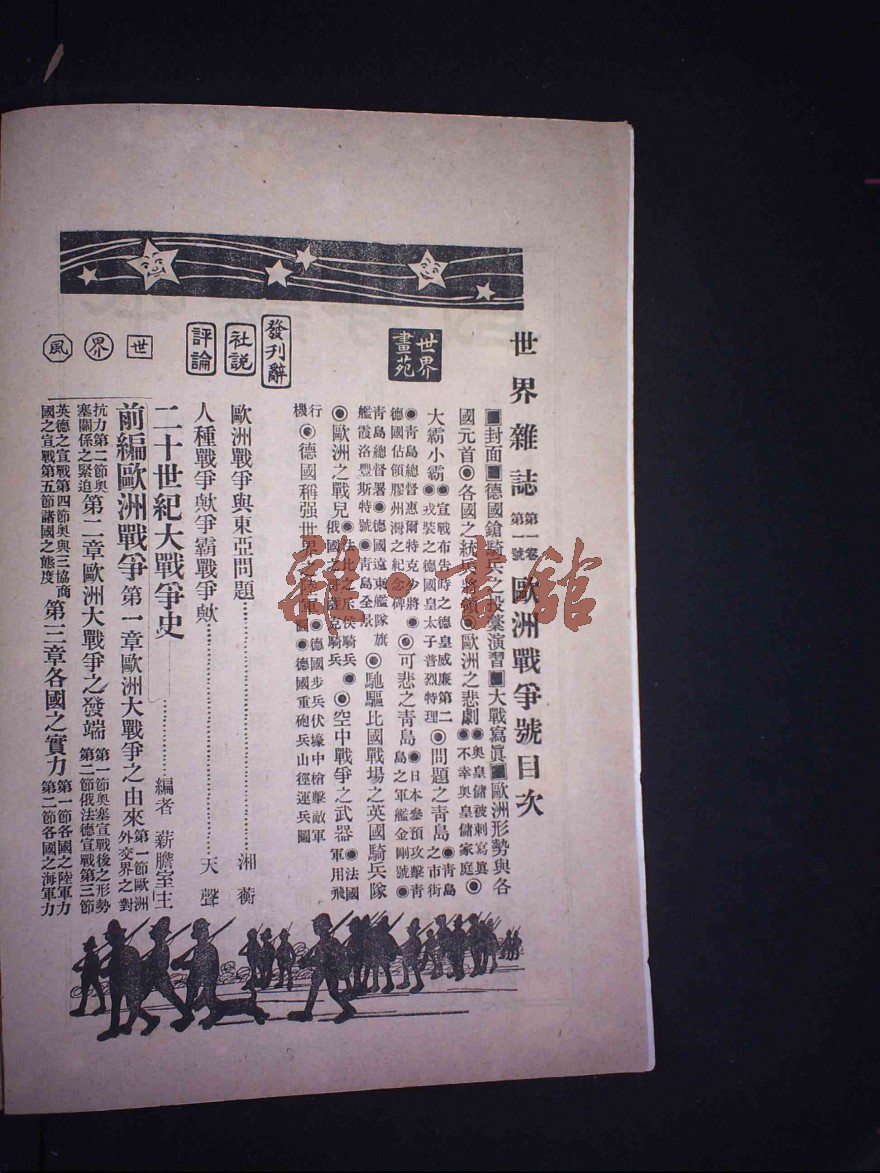 世界雜誌 第一卷 第一號 歐洲戰爭號目次
世界畫苑
■封面■德國鎗騎兵之技藝演習■大戰寫眞■歐洲形勢與各
國元首◉各國之統兵將領◉歐洲之悲劇●奧皇儲被刺寫眞●不幸奧皇儲家庭◉
大霸小霸●宣戰布告時之德皇威廉第二●戎裝之德國皇太子普烈特理◉問題之青島●青島之市街
●青島總督惠爾特克少將●德國佔領膠州灣之紀念碑◉可悲之青島●日本參預攻擊青島之軍艦金剛號●
青島總督署●德國遠東艦隊旗艦霞洛豐斯特號●青島全景◉馳驅比國戰場之英國騎兵隊
◉歐洲之戰兒●法比之斥侯騎兵●俄國之哥薩克騎兵◉空中戰爭之武器●法國軍用飛
行機◉德國稱强世界之陸軍●德國步兵伏壕中槍擊敵軍圖●德國重砲兵山徑運兵圖
發刊辭
社說
歐洲戰爭與東亞問題 湘蘅
評論
人種戰爭歟爭霸戰爭歟 天聲
世界風
二十世紀大戰爭史 編者 薪膽室主
前編歐洲戰爭 第一章歐洲大戰爭之由來 第一節歐洲外交界之對
抗力第二節奧塞關係之緊迫 第二章歐洲大戰爭之發端 第一節奧塞宣戰後之形勢第二節俄法德宣戰第三節
英德之宣戰第四節奧與三協商國之宣戰第五節諸國之態度 第三章各國之實力 第一節各國之陸軍力第二節各國之海軍力
龍·書館